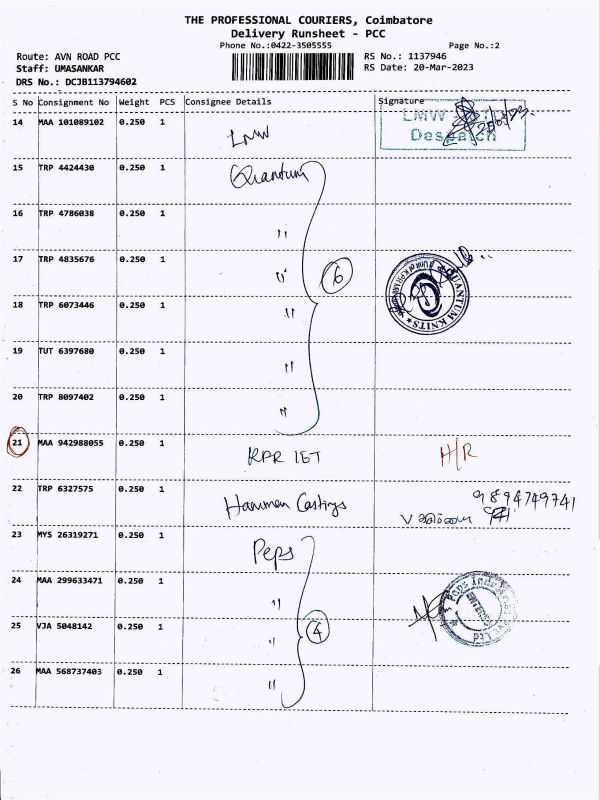 THE PROFESSIONAL COURIERS, Coimbatore
Delivery Runsheet - PCC
Phone No.:0422-3505555
Page No.:2
Route: AVN ROAD PCC
RS No.: 1137946
Staff: UMASANKAR
RS Date: 20-Mar-2023
DRS No.: DCJB113794602
S No Consignment No Weight PCS Consignee Details Signature
14 MAA 101089102 0.250 1 LMW
LMW
Despatch
15 TRP 4424430 0.250 1 Quantum
16 TRP 4786038 0.250 1 "
17 TRP 4835676 0.250 1 " 6
QUANTUM KNITS
18 TRP 6073446 0.250 1 "
19 TUT 6397680 0.250 1 "
20 TRP 8097402 0.250 1 "
21 MAA 942988055 0.250 1 KPR IET H/R
22 TRP 6327575 0.250 1 Hammen Castings 9894749741
23 MYS 26319271 0.250 1 Peps
24 MAA 299633471 0.250 1 "
25 VJA 5048142 0.250 1 " 4
26 MAA 568737403 0.250 1 "